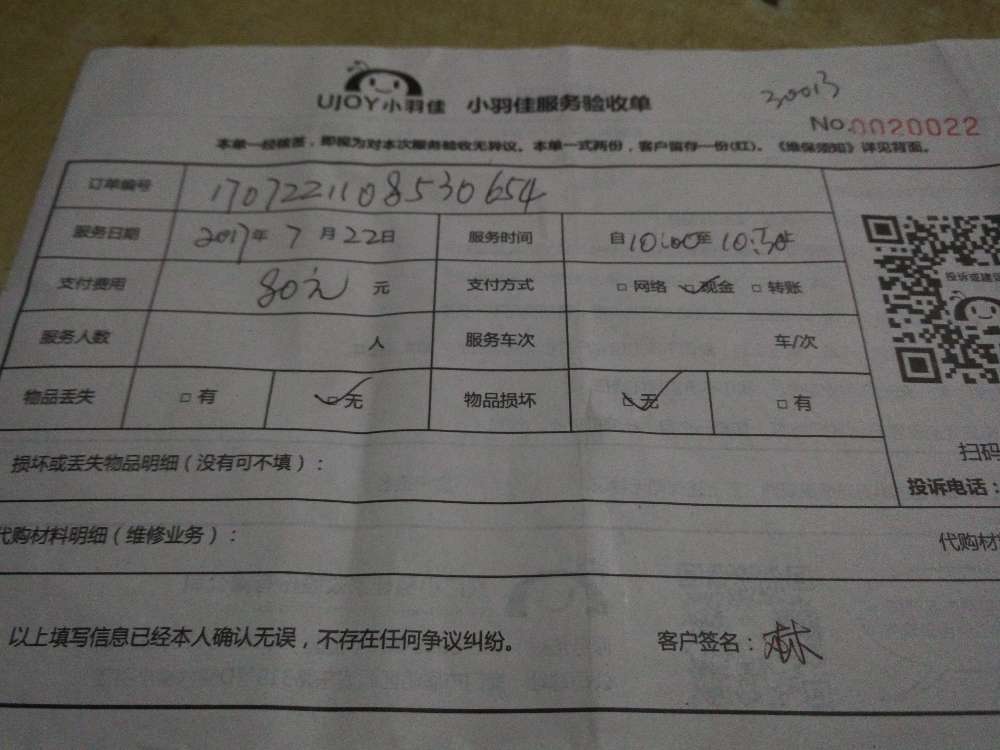 30013
UJOY小羽佳 小羽佳服务验收单
No.0020022
本单一经核签，即视为对本次服务验收无异议。本单一式两份，客户留存一份(红)。《维保须知》详见背面。
订单编号 1707221108530654
服务日期 2017年7月22日 服务时间 自10:00至10:30
投诉或建议
支付费用 80元 元 支付方式 □网络 ☑现金 □转账
服务人数 人 服务车次 车/次
物品丢失 □有 ☑无 物品损坏 ☑无 □有
扫码
损坏或丢失物品明细（没有可不填）：
投诉电话：
代购材料明细（维修业务）： 代购材
以上填写信息已经本人确认无误，不存在任何争议纠纷。 客户签名：林